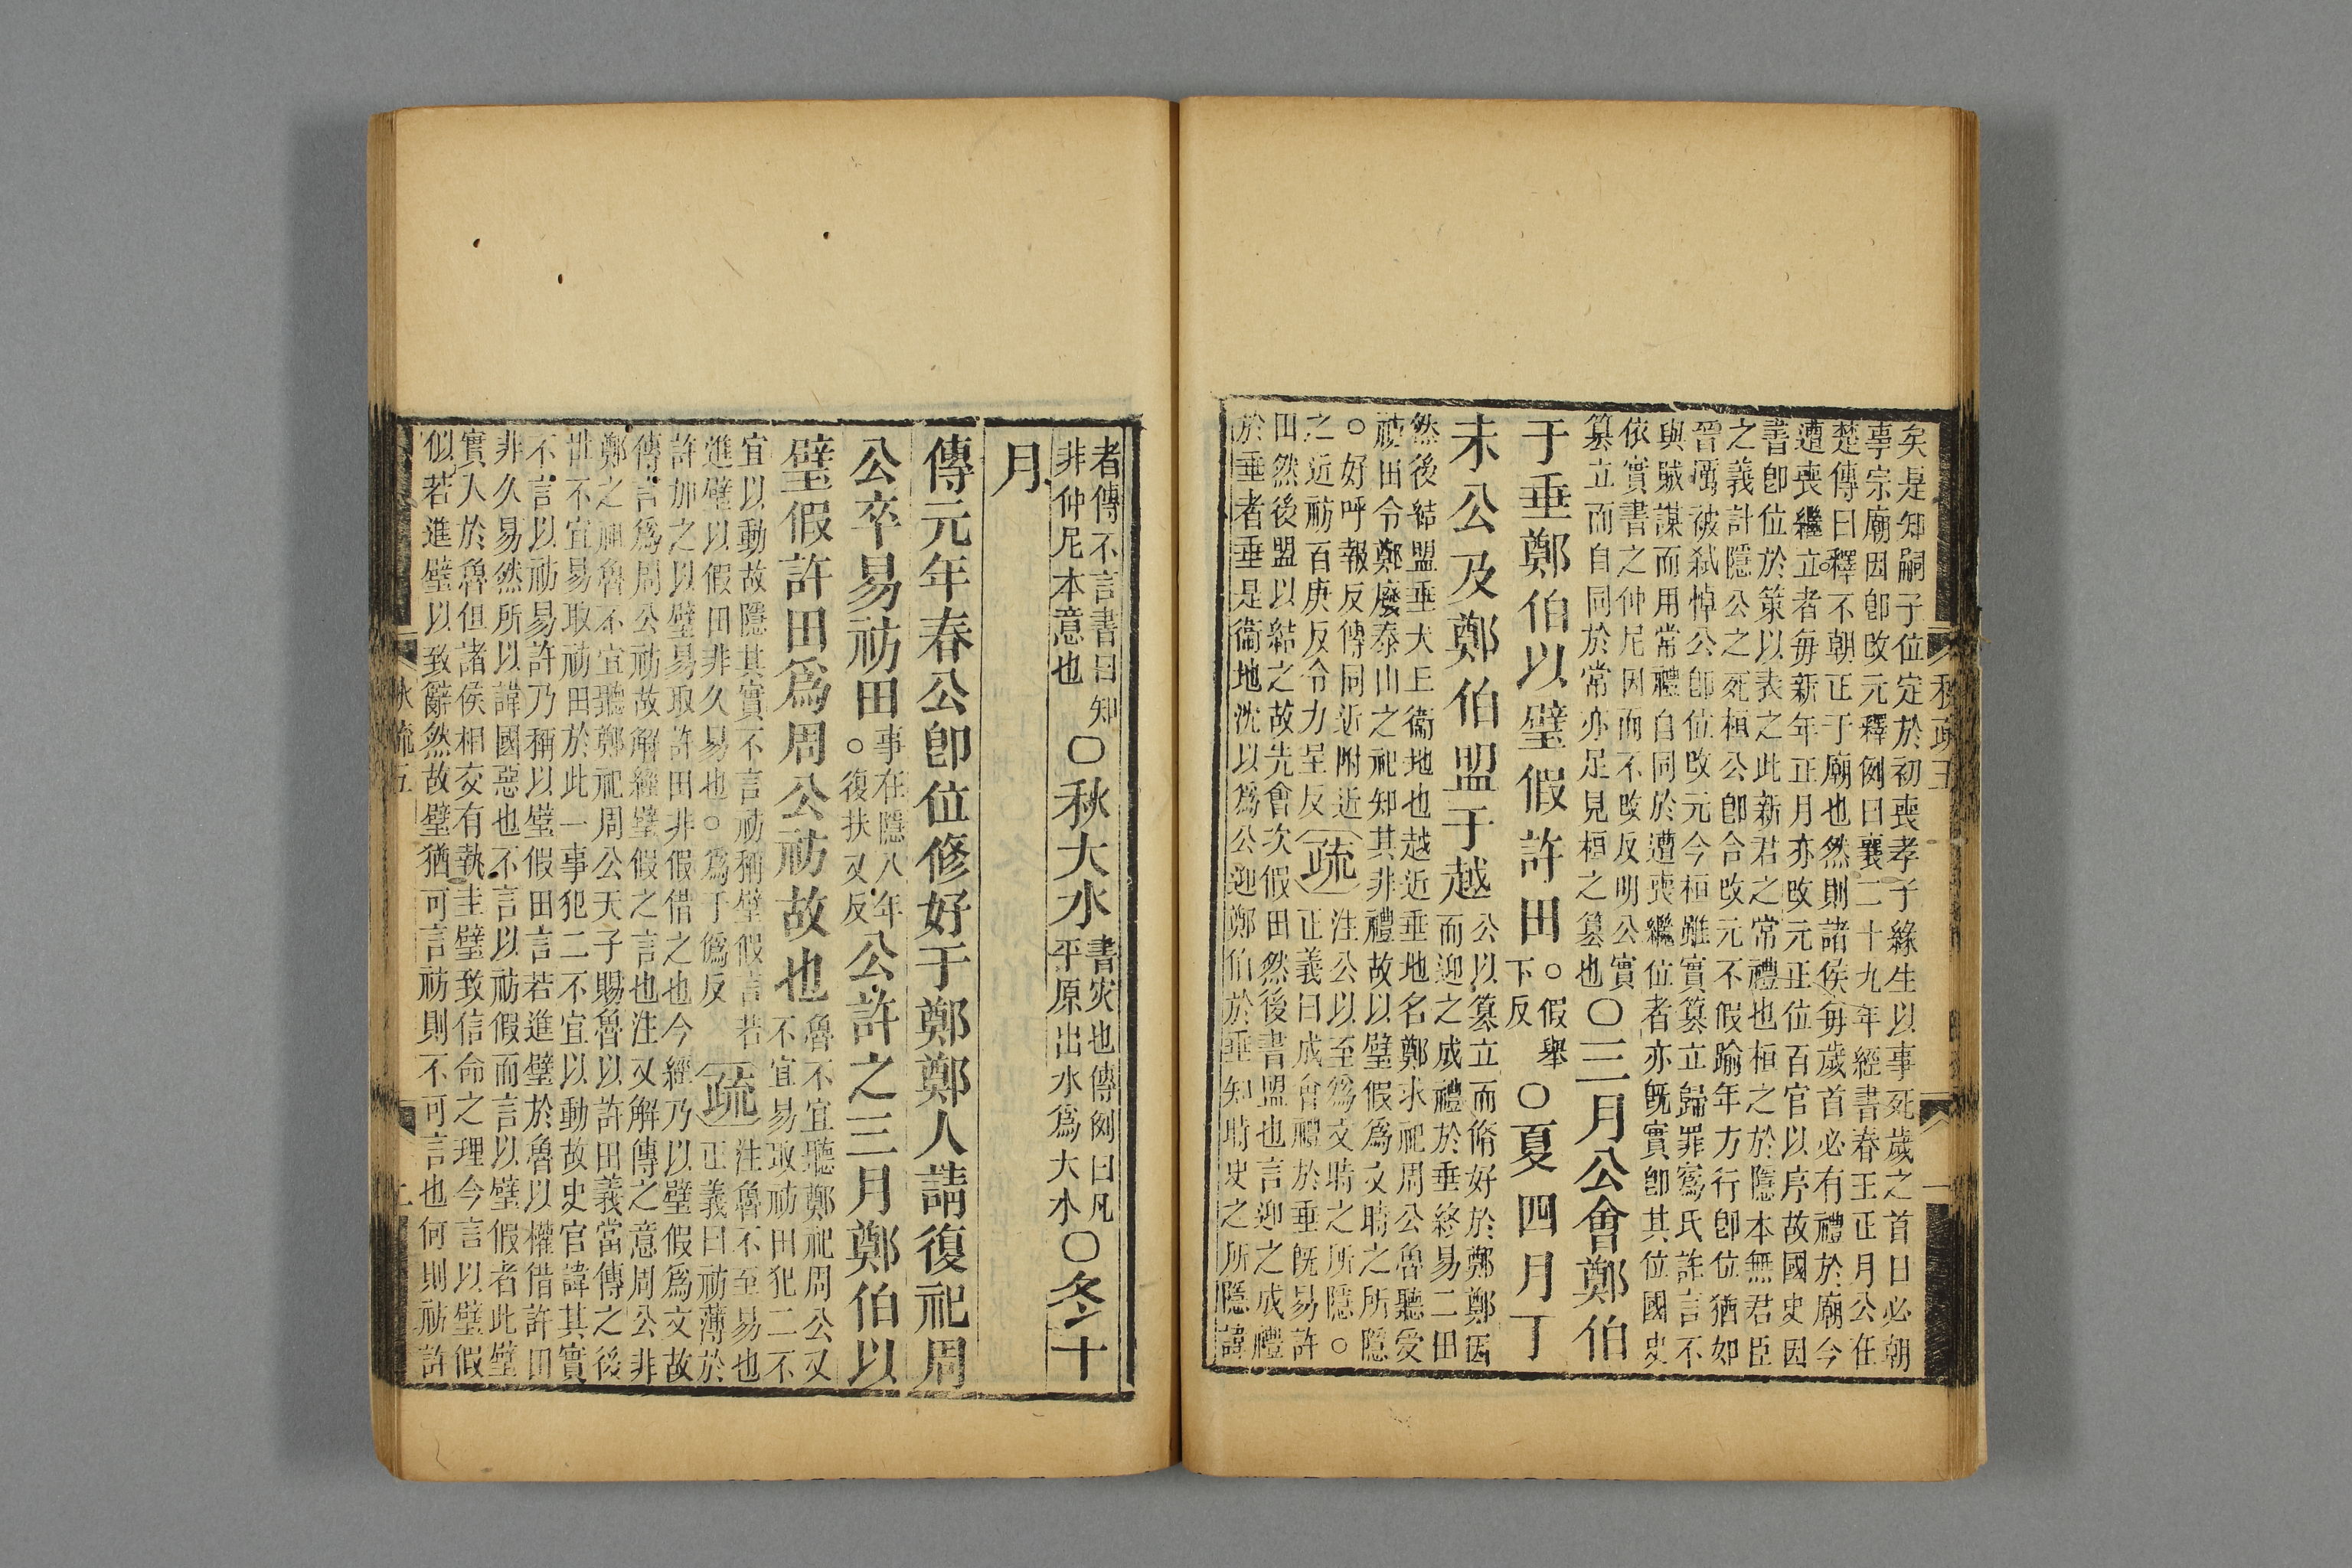 矣是知嗣子位定於初喪孝子緣生以事死歲之首日必朝
事宗廟因卽改元釋例曰襄二十九年經書春王正月公在
楚傳曰釋不朝正于廟也然則諸侯每歲首必有禮於廟今
遭喪繼立者每新年正月亦改元正位百官以序故國史因
書卽位於策以表之此新君之常禮也桓之於隱本無君臣
之義計隱公之死桓公卽合改元不假踰年方行卽位猶如
晉厲被弒悼公卽位改元今桓雖實篡立歸罪寪氏詐言不
與賊謀而用常禮自同於遭喪繼位者亦旣實卽其位國史
依實書之仲尼因而不改反明公實
篡立而自同於常亦足見桓之篡也〇三月公會鄭伯
于垂鄭伯以璧假許田。假舉下反〇夏四月丁
未公及鄭伯盟于越公以篡立而脩好於鄭鄭因
而迎之成禮於垂終易二田
然後結盟垂犬丘衞地也越近垂地名鄭求祀周公魯聽受
祊田令鄭廢泰山之祀知其非禮故以璧假爲文時之所隱
。好呼報反傳同近附近
之近祊百庚反令力呈反疏注公以至爲文時之所隱。
正義曰成會禮於垂旣易許
田然後盟以結之故先會次假田然後書盟也言迎之成禮
於垂者垂是衞地沈以爲公迎鄭伯於垂知時史之所隱諱
者傳不言書曰知
非仲尼本意也〇秋大水書灾也傳例曰凡
平原出水爲大水〇冬十
月
傳元年春公卽位修好于鄭鄭人請復祀周
公卒易祊田。事在隱八年
復扶又反公許之三月鄭伯以
璧假許田爲周公祊故也魯不宜聽鄭祀周公又
不宜易取祊田犯二不
宜以動故隱其實不言祊稱璧假言若
進璧以假田非久易也。爲于僞反疏注魯不至易也
正義曰祊薄於
許加之以璧易取許田非假借之也今經乃以璧假爲文故
傳言爲周公祊故解經璧假之言也注又解傳之意周公非
鄭之神魯不宜聽鄭祀周公天子賜魯以許田義當傳之後
世不宜易取祊田於此一事犯二不宜以動故史官諱其實
不言以祊易許乃稱以璧假田言若進璧於魯以權借許田
非久易然所以諱國惡也不言以祊假而言以璧假者此璧
實入於魯但諸侯相交有執圭璧致信命之理今言以璧假
似若進璧以致辭然故璧猶可言祊則不可言也何則祊許